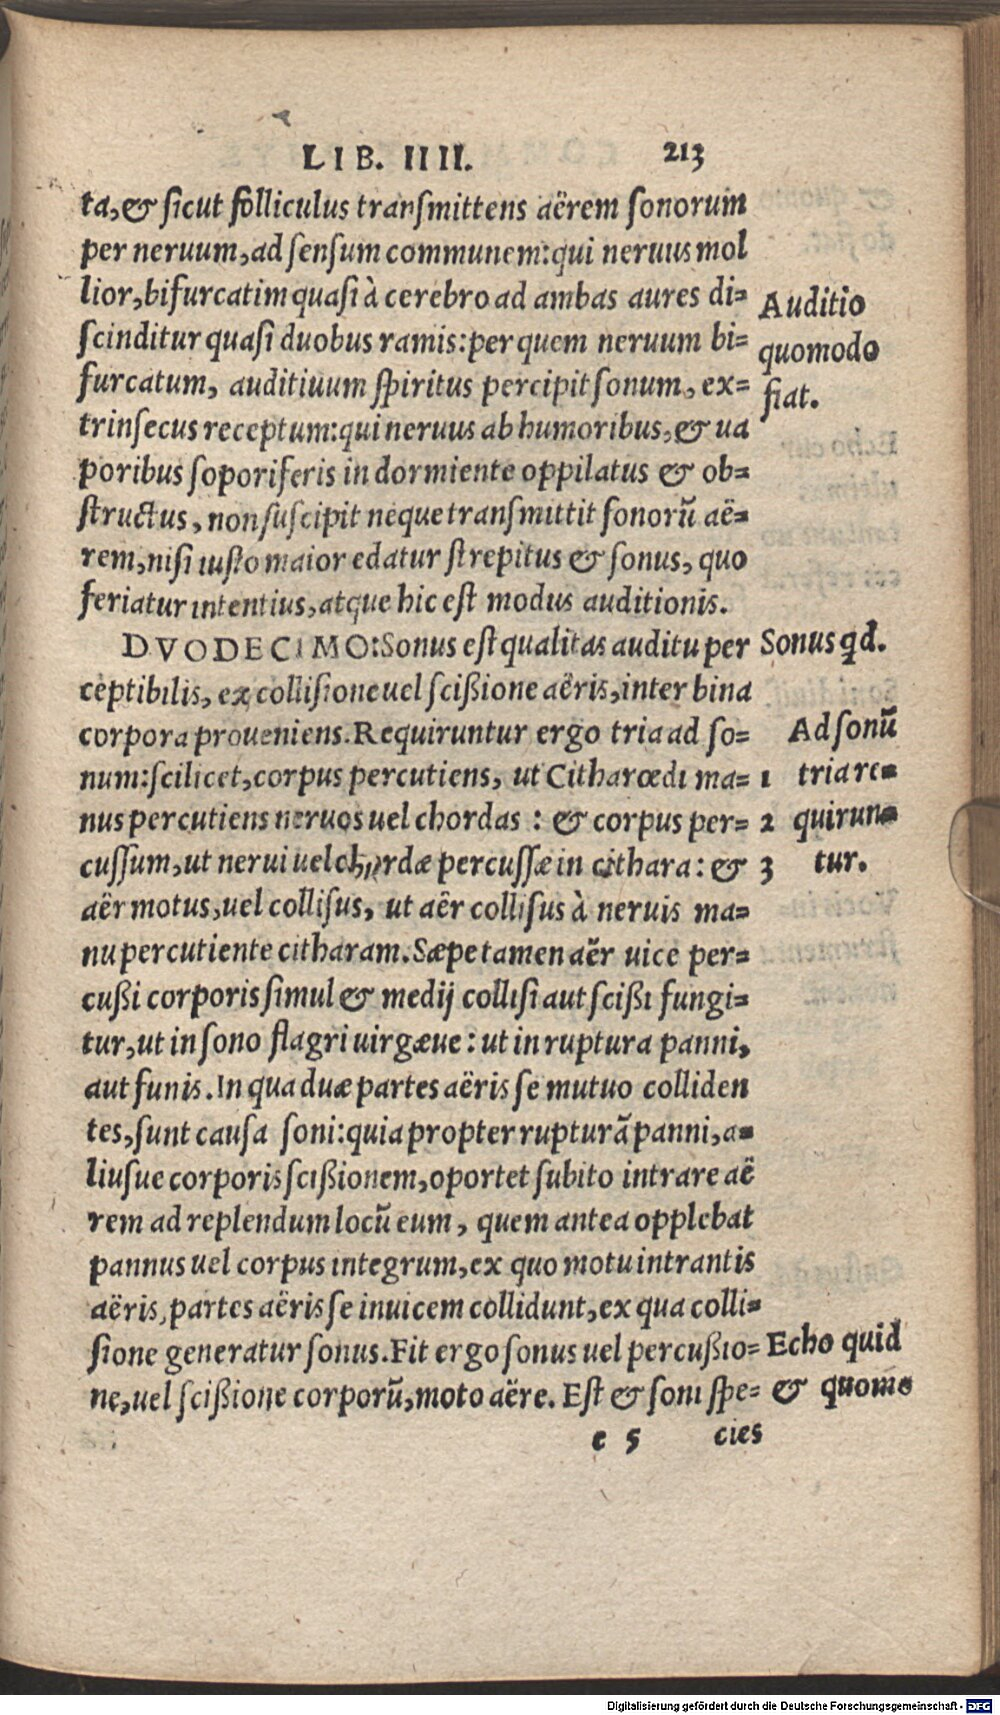 LIB. IIII. 213
ta, & ſicut folliculus tranſmittens aërem ſonorum
per neruum, ad ſenſum communem: qui neruus mol
lior, bifurcatim quaſi à cerebro ad ambas aures di=
ſcinditur quaſi duobus ramis: per quem neruum bi=
furcatum, auditiuum ſpiritus percipit ſonum, ex=
trinſecus receptum: qui neruus ab humoribus, & ua
poribus ſoporiferis in dormiente oppilatus & ob=
ſtructus, non ſuſcipit neque tranſmittit ſonorũ aë=
rem, niſi iuſto maior edatur ſtrepitus & ſonus, quo
feriatur intentius, atque hic eſt modus auditionis.
Auditio
quomodo
fiat.
DVODECIMO: Sonus eſt qualitas auditu per
ceptibilis, ex colliſione uel ſcißione aëris, inter bina
corpora proueniens. Requiruntur ergo tria ad ſo=
num: ſcilicet, corpus percutiens, ut Citharœdi ma= 1
nus percutiens neruos uel chordas : & corpus per= 2
cuſſum, ut nerui uel chordæ percuſſæ in cithara: & 3
aër motus, uel colliſus, ut aër colliſus à neruis ma=
nu percutiente citharam. Sæpe tamen aër uice per=
cußi corporis ſimul & medij colliſi aut ſcißi fungi=
tur, ut in ſono flagri uirgæue: ut in ruptura panni,
aut funis. In qua duæ partes aëris ſe mutuo colliden
tes, ſunt cauſa ſoni: quia propter rupturã panni, a=
liuſue corporis ſcißionem, oportet ſubito intrare aë
rem ad replendum locũ eum, quem antea opplebat
pannus uel corpus integrum, ex quo motu intrantis
aëris, partes aëris ſe inuicem collidunt, ex qua colli=
ſione generatur ſonus. Fit ergo ſonus uel percußio=
ne, uel ſcißione corporũ, moto aëre. Eſt & ſoni ſpe=
Sonus qd.
Ad ſonũ
tria re=
quirun=
tur.
Echo quid
& quomo
e 5 cies
Digitalisierung gefördert durch die Deutsche Forschungsgemeinschaft - DFG